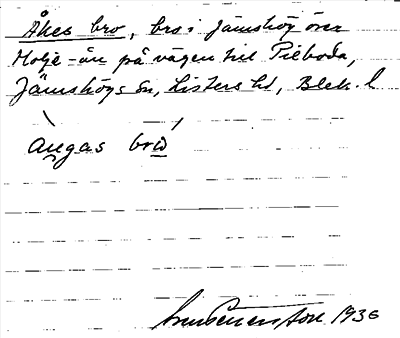 Åkes bro, bro i Jämshög över
Holje-ån på vägen till Pieboda,
Jämshögs sn, Listers hd, Blek. l
augas bro
1936